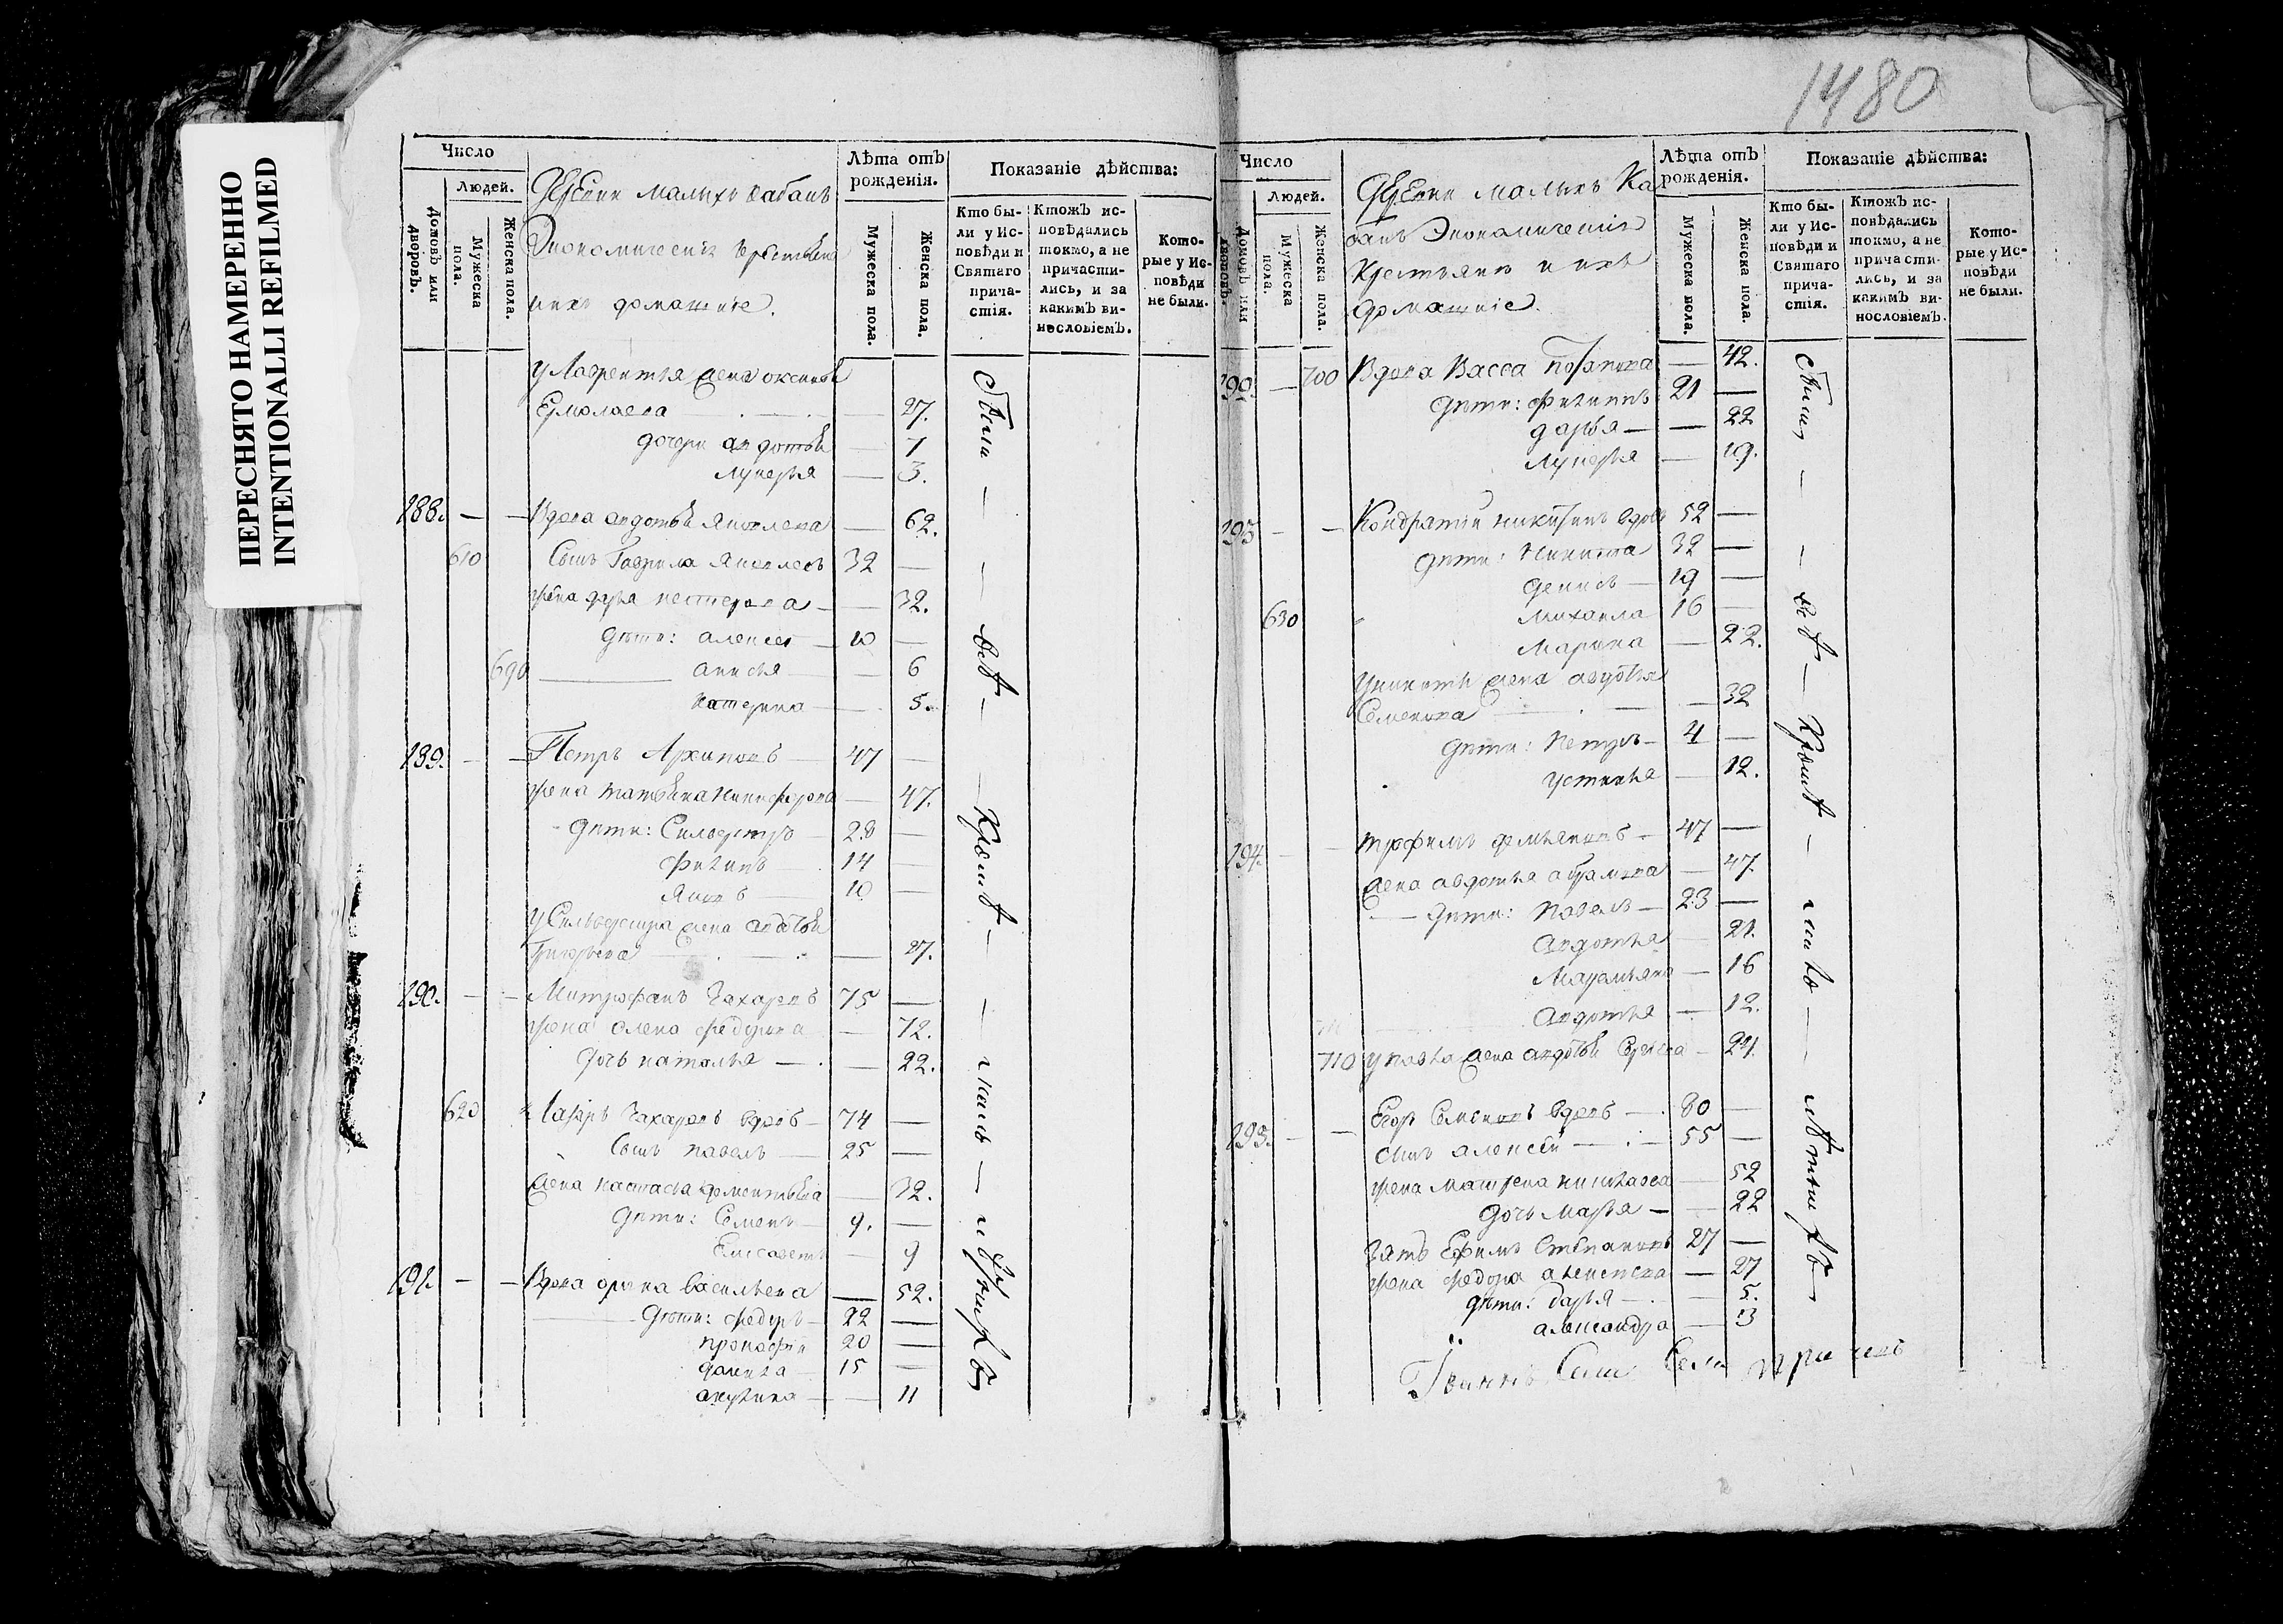 ПЕРЕСНЯТО НАМЕРЕННО
INTENTIONALLI REFILMED
1480
Число
Людей.
Домовъ или дворовъ.
Мужеска пола.
Женска пола.
Деревни малыхъ Кабанъ
Экономическiе крестьяне
ихъ домашнiе.
Лѣта отъ рожденiя.
Мужеска пола.
Женска пола.
Показанiе дѣйства:
Кто бы-
ли у Ис-
повѣди и
Святаго
прича-
стiя.
Ктожъ ис-
повѣдались
токмо, а не
причасти-
лись, и за
какимъ ви-
нословiемъ.
Кото-
рые у Ис-
повѣди
не были.
у Лаврентья жена оксинья
Ермолаева — 27.
дочери авдотья — 7
лукерья — 3.
188. — — Вдова авдотья яковлева — 62.
610 Сынъ Гаврила яковлевъ 32 —
жена дарья нестерова — 32.
дѣти: алексей 10 —
690 анисья — 6
катерина — 5.
189. — — Петръ Архиповъ 47 —
жена татьяна никифорова — 47.
дѣти: Сильвестръ 28 —
филипъ 14 —
яковъ 10 —
у Сильвестра жена авдотья
Григорьева — 27.
190. — — Митрофанъ Захаровъ 75 —
жена олена федорова — 72.
дочь наталья — 22.
620 Лазарь Захаровъ вдовъ 74 —
Сынъ павелъ 25 —
жена настасья дементьева — 32.
дѣти: Семенъ 9. —
Елисавета — 9
191. — — Вдова орина васильева — 52.
дѣти: федоръ 22 —
прокофiй 20 —
данила 15 —
акулина — 11
Сiи — всѣ — Кромѣ —
Число
Людей.
Домовъ или дворовъ.
Мужеска пола.
Женска пола.
Деревни малыхъ Ка
банъ Экономическiе
Крестьяне и ихъ
домашнiе.
Лѣта отъ рожденiя.
Мужеска пола.
Женска пола.
Показанiе дѣйства:
Кто бы-
ли у Ис-
повѣди и
Святаго
прича-
стiя.
Ктожъ ис-
повѣдались
токмо, а не
причасти-
лись, и за
какимъ ви-
нословiемъ.
Кото-
рые у Ис-
повѣди
не были.
— 700 Вдова Васса — 42.
дѣти: филипъ 21 —
дарья — 22
лукерья — 19.
193 — — Кондратiй никитинъ вдовъ 52 —
дѣти: никита 32 —
денисъ 19 —
630 михаила 16 —
марина — 22.
у никиты жена авдотья
Семенова — 32
дѣти: петръ 4 —
устинья — 12.
194. — — трофимъ демьяновъ 47 —
жена авдотья абрамова — 47.
дѣти: павелъ 23 —
авдотья — 21.
марѳемьяна — 16
авдотья — 12.
710 у павла жена авдотья — 24.
195. — — Егоръ Семеновъ вдовъ 80 —
сынъ алексей 55 —
жена матрена николаева — 52
дочь марья — 22
зять Ефимъ Степановъ 27 —
жена федора алексеева — 27
дѣти: дарья — 5.
александра — 3
Сiи — всѣ — Кромѣ —